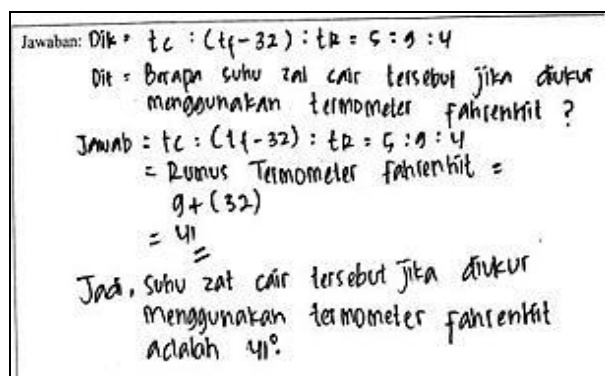 Jawaban: Dik = tc : (tf-32) : tR = 5 : 9 : 4
Dit = Berapa suhu zat cair tersebut jika diukur
menggunakan termometer fahrenhit ?
Jawab = tc : (tf-32) : tR = 5 : 9 : 4
= Rumus Termometer fahrenhit =
9+(32)
= 41
Jadi, suhu zat cair tersebut jika diukur
menggunakan termometer fahrenhit
adalah 41°.